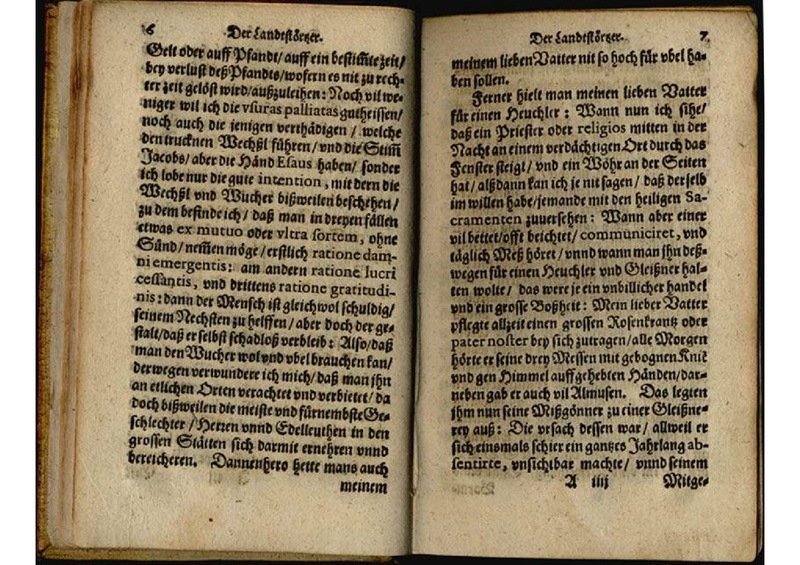 6
Der Landtstörtzer.
Gelt oder auff Pfandt/auff ein bestim̃te zeit/
bey verlust deß Pfandts/wofern es nit zu rech-
ter zeit gelöst wird/außzuleihen: Noch vil we-
niger wil ich die vsuras palliatas gutheissen/
noch auch die jenigen verthädigen / welche
den trucknen Wechßl führen/vnd die Stim̃
Jacobs/aber die Händ Esaus haben/ sonder
ich lobe nur die gute intention, mit dern die
Wechßl vnd Wucher bißweilen beschehen/
zu dem befinde ich / daß man in dreyen fällen
etwas ex mutuo oder vltra sortem, ohne
Sünd/nem̃en möge/erstlich ratione dam-
ni emergentis: am andern ratione lucri
cessantis, vnd drittens ratione gratitudi-
nis: dann der Mensch ist gleich wol schuldig/
seinem Nechsten zu helffen/aber doch der ge-
stalt/daß er selbst schadloß verbleib: Also/daß
man den Wucher wol vnd vbel brauchen kan/
derwegen verwundere ich mich/daß man jhn
an etlichen Orten verachtet vnd verbietet/da
doch bißweilen die meiste vnd fürnembste Ge-
schlechter / Herzen vnnd Edelleuthen in den
grossen Stätten sich darmit ernehren vnnd
bereicheren. Dannenhero hette mans auch
meinem
Der Landtstörtzer.
7
meinem lieben Vatter nit so hoch für vbel ha-
ben sollen.
Ferner hielt man meinen lieben Vatter
für einen Heuchler: Wann nun ich sihe/
daß ein Priester oder religios mitten in der
Nacht an einem verdächtigen Ort durch das
Fenster steigt/ vnd ein Wöhr an der Seiten
hat/ alßdann kan ich je nit sagen/ daß derselb
im willen habe/jemande mit den heiligen Sa-
cramenten zuuersehen: Wann aber einer
vil bettet/offt beichtet/communiciret, vnd
täglich Meß höret/ vnnd wann man jhn deß-
wegen für einen Heuchler vnd Gleißner hal-
ten wolte/ das were je ein vnbillicher handel
vnd ein grosse Boßheit: Mein lieber Vatter
pflegte allzeit einen grossen Rosenkrantz oder
pater noster bey sich zutragen/alle Morgen
hörte er seine drey Messen mit gebognen Knie
vnd gen Himmel auffgehebten Händen/dar-
neben gab er auch vil Almusen. Das legten
jhm nun seine Mißgönner zu einer Gleißne-
rey auß: Die vrsach dessen war/ allweil er
sich einsmals schier ein gantzes Jahrlang ab-
sentirte, vnsichtbar machte/ vnnd seinem
A iiij
Mitge-